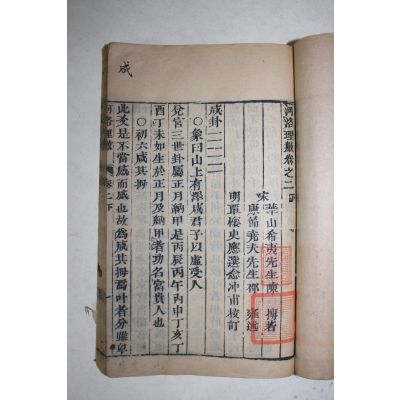 咸
河洛理數卷之二下
宋
華山希夷先生陳
摶著
康節堯夫先生邵
雍述
明
史應選念冲甫校訂
咸卦二二二二
○象曰山上有澤咸君子以虛受人
兌宮三世卦屬正月納甲是丙辰丙午丙申丁亥丁
酉丁未如生於正月及納甲者功名富貴人也
○初六咸其拇
此爻是不當感而感也故為咸其拇
叶者分雖卑
河洛理數
卷二下